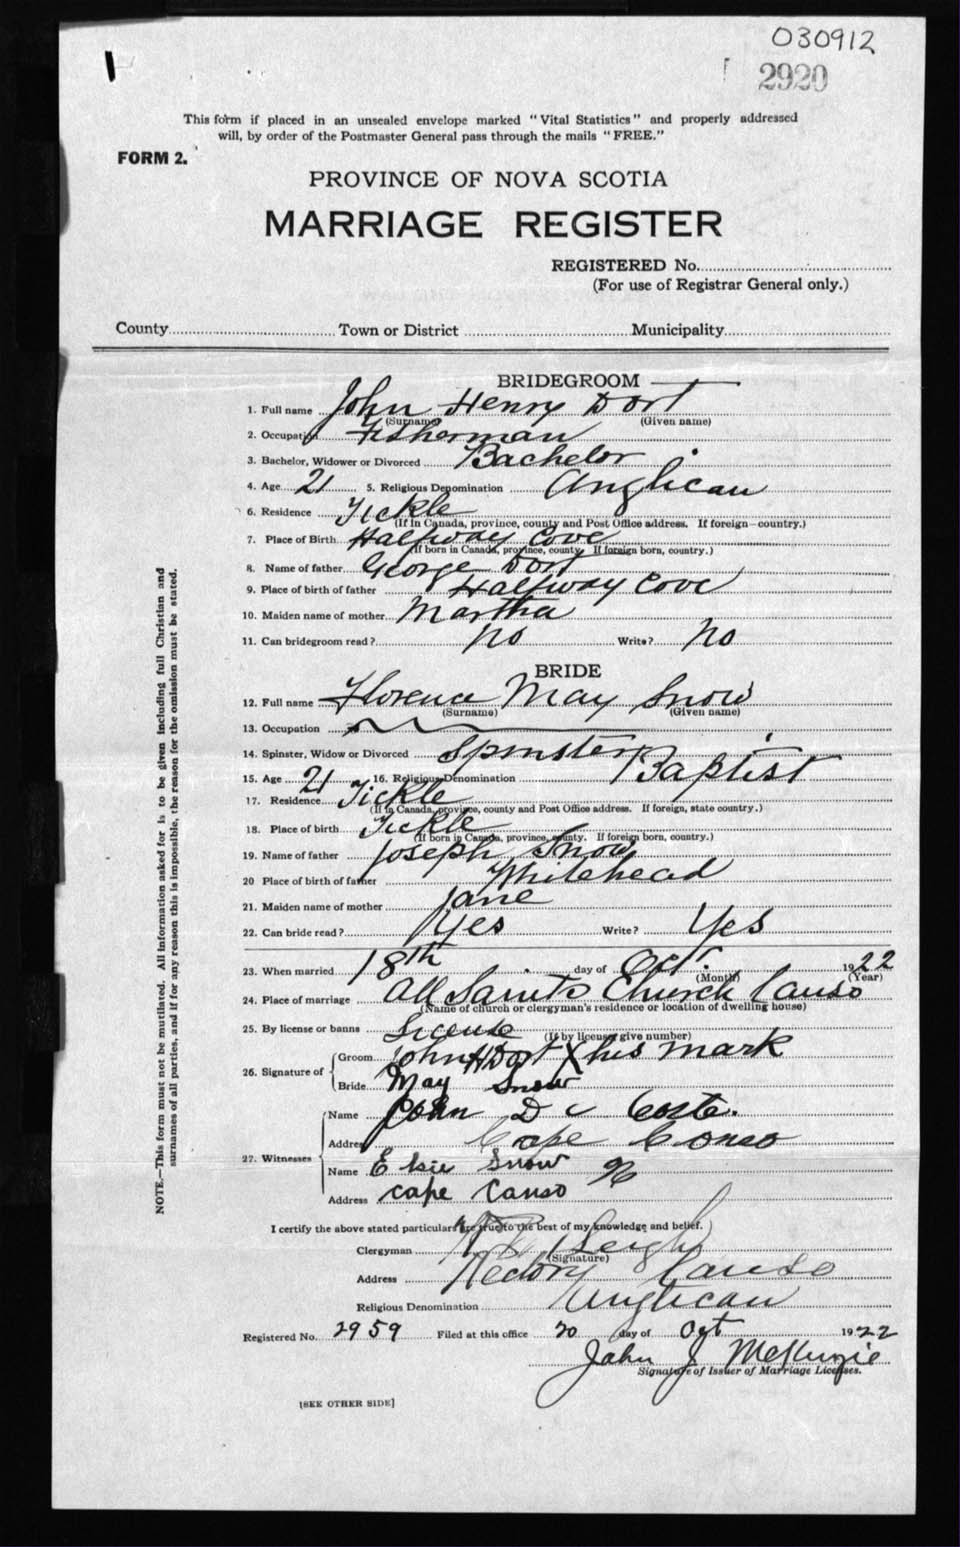 030912
2920
This form if placed in an unsealed envelope marked "Vital Statistics" and properly addressed
will, by order of the Postmaster General pass through the mails "FREE."
FORM 2.
PROVINCE OF NOVA SCOTIA
MARRIAGE REGISTER
REGISTERED No.
(For use of Registrar General only.)
County Town or District Municipality
BRIDEGROOM
1. Full name John Henry Dort
(Surname) (Given name)
2. Occupation Fisherman
3. Bachelor, Widower or Divorced Bachelor
4. Age 21 5. Religious Denomination Anglican
6. Residence Tickle
(If in Canada, province, county and Post Office address. If foreign—country.)
7. Place of Birth Halfway Cove
(If born in Canada, province, county. If foreign born, country.)
8. Name of father George Dort
9. Place of birth of father Halfway Cove
10. Maiden name of mother Martha
11. Can bridegroom read? no Write? No
BRIDE
12. Full name Florence May Snow
(Surname) (Given name)
13. Occupation
14. Spinster, Widow or Divorced Spinster
15. Age 21 16. Religious Denomination Baptist
17. Residence Tickle
(If in Canada, province, county and Post Office address. If foreign, state country.)
18. Place of birth Tickle
(If born in Canada, province, county. If foreign born, country.)
19. Name of father Joseph Snow
20 Place of birth of father Whitehead
21. Maiden name of mother Jane
22. Can bride read? Yes Write? Yes
23. When married 18th day of Oct. 1922
(Month) (Year)
24. Place of marriage All Saints Church Canso
(Name of church or clergyman's residence or location of dwelling house)
25. By license or banns License
(If by license, give number)
26. Signature of
Groom John H Dort X his mark
Bride May Snow
27. Witnesses
Name John D
Address Cape Conso
Name Elsie Snow
Address Cape Canso
I certify the above stated particulars are true to the best of my knowledge and belief.
Clergyman Leigh
(Signature)
Address Rectory Canso
Religious Denomination Anglican
Registered No. 2959 Filed at this office 20 day of Oct 1922
John J McKenzie
Signature of Issuer of Marriage Licenses.
[SEE OTHER SIDE]
NOTE.—This form must not be mutilated. All information asked for is to be given including full Christian and
surnames of all parties, and if for any reason this is impossible, the reason for the omission must be stated.